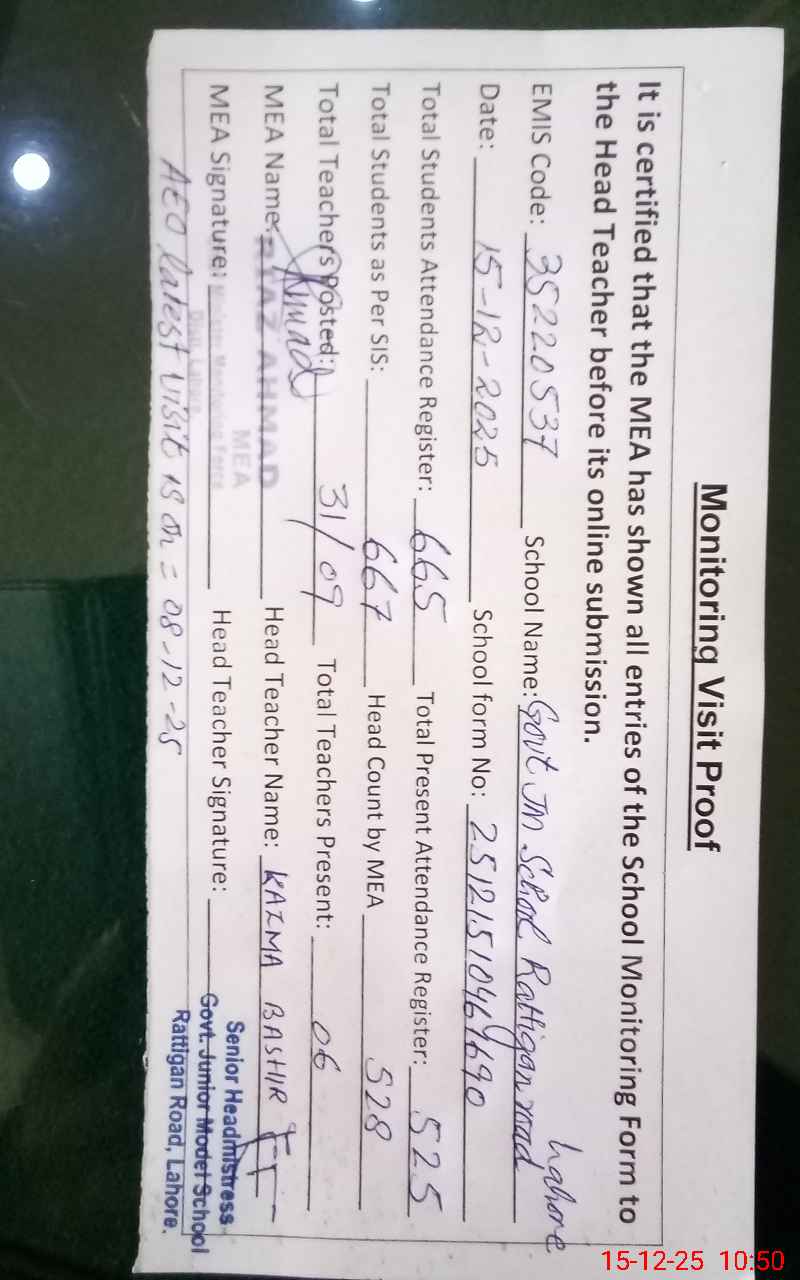 Monitoring Visit Proof
It is certified that the MEA has shown all entries of the School Monitoring Form to
the Head Teacher before its online submission.
Lahore
EMIS Code: 35220537 School Name: Govt JM School Rattigan road
Date: 15-12-2025 School form No:
Total Students Attendance Register: 665 Total Present Attendance Register: 525
Total Students as Per SIS: 667 Head Count by MEA 528
Total Teachers Posted: 31/09 Total Teachers Present: 06
MEA Name: AHMAD Head Teacher Name: KAZMA BASHIR
Ahmad
MEA
MEA Signature: Monitoring Force Head Teacher Signature:
Distt. Lahore
Senior Headmistress
Govt. Junior Model School
Rattigan Road, Lahore.
AEO latest visit is on = 08-12-25
15-12-25 10:50